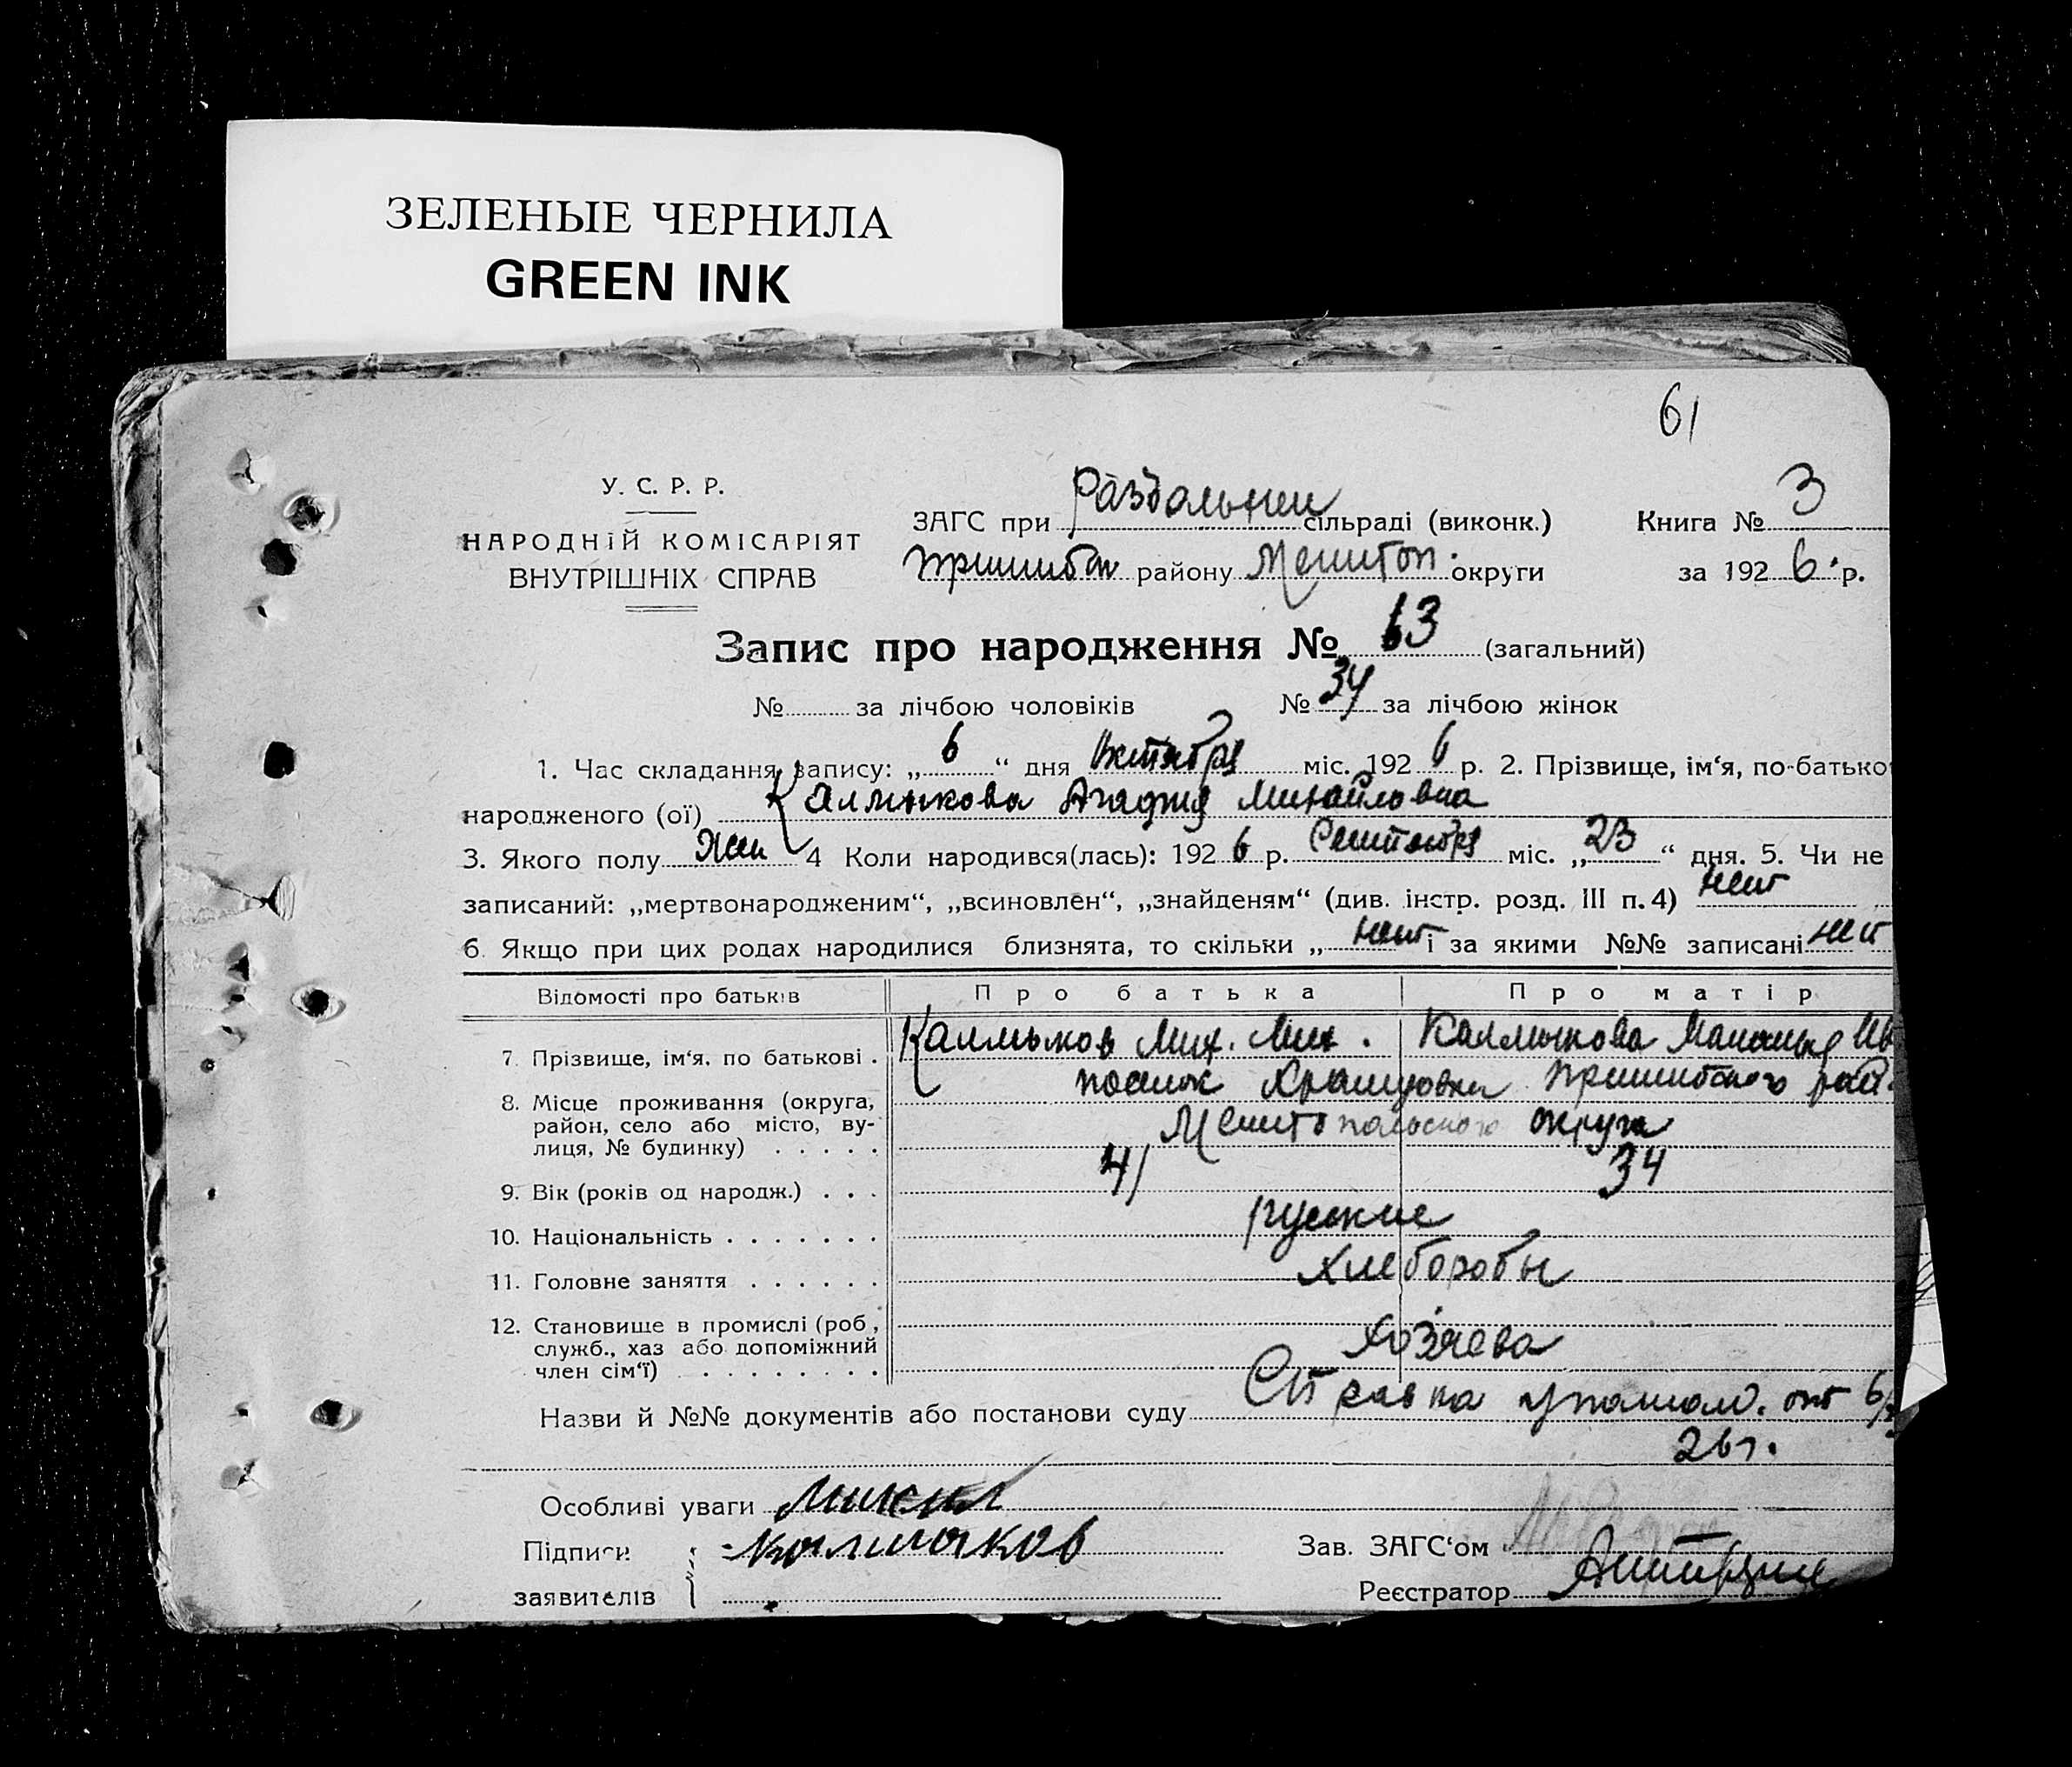 ЗЕЛЕНЫЕ ЧЕРНИЛА
GREEN INK
61
У. С. Р. Р.
НАРОДНІЙ КОМІСАРІЯТ
ВНУТРІШНІХ СПРАВ
ЗАГС при Раздольнен сільраді (виконк.) Книга № 3
Пришибск району Мелитоп. округи за 1926 р.
Запис про народження № 63 (загальний)
№ за лічбою чоловіків № 34 за лічбою жінок
1. Час складання запису: „6“ дня Октября міс. 1926 р. 2. Прізвище, ім‘я, по-батько
народженого (ої) Калмыкова Агафия Михайловна
3. Якого полу Жен 4 Коли народився(лась): 1926 р. Сентября міс. „23“ дня. 5. Чи не
записаний: „мертвонародженим“, „всиновлен“, „знайденям“ (див. інстр. розд. III п. 4) нет
6. Якщо при цих родах народилися близнята, то скільки „ нет і за якими №№ записані нет
Відомості про батьків Про батька Про матір
7. Прізвище, ім‘я, по батькові . Калмыков Мих. Мих. Калмыкова Ив
8. Місце проживання (округа, поселок Пришибского рай.
район, село або місто, ву- Мелитопольского округа
лиця, № будинку) . . . . .
9. Вік (років од народж.) . . . 41 34
10. Національність . . . . . . . русские
11. Головне заняття . . . . . . Хлеборобы
12. Становище в промислі (роб.,
служб., хаз або допоміжний Хозяева
член сім‘ї) . . . . . . . . .
Назви й №№ документів або постанови суду Справка уполном. от 6/
26 г.
Особливі уваги
Підписи Калмыков Зав. ЗАГС‘ом
заявителів Реєстратор